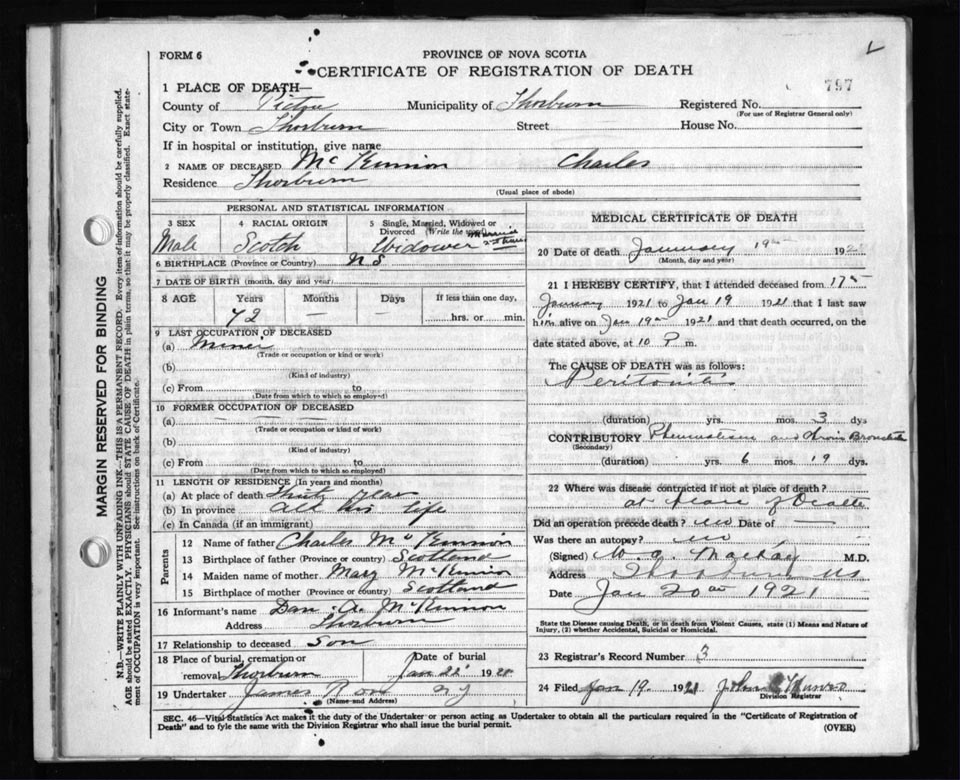 FORM 6
PROVINCE OF NOVA SCOTIA
CERTIFICATE OF REGISTRATION OF DEATH
797
1 PLACE OF DEATH—
County of Pictou Municipality of Thorburn Registered No.
(For use of Registrar General only)
City or Town Thorburn Street House No.
If in hospital or institution, give name
2 NAME OF DECEASED McKinnon Charles
Residence Thorburn
(Usual place of abode)
PERSONAL AND STATISTICAL INFORMATION
3 SEX 4 RACIAL ORIGIN 5 Single, Married, Widowed or Divorced (Write the word)
Male Scotch Widower Married
6 BIRTHPLACE (Province or Country) N S
7 DATE OF BIRTH (month, day and year)
8 AGE Years Months Days If less than one day,
72 — — hrs. or min.
9 LAST OCCUPATION OF DECEASED
(a) Miner
(Trade or occupation or kind or work)
(b)
(Kind of industry)
(c) From to
(Date from which to which so employed)
10 FORMER OCCUPATION OF DECEASED
(a)
(Trade or occupation or kind of work)
(b)
(Kind of industry)
(c) From to
(Date from which to which so employed)
11 LENGTH OF RESIDENCE (In years and months)
(a) At place of death Thirty years
(b) In province all his life
(c) In Canada (if an immigrant)
Parents
12 Name of father Charles McKinnon
13 Birthplace of father (Province or country) Scotland
14 Maiden name of mother Mary McKinnon
15 Birthplace of mother (Province or country) Scotland
16 Informant's name Dan. A. McKinnon
Address Thorburn
17 Relationship to deceased Son
18 Place of burial, cremation or removal Thorburn Date of burial Jan 22 1921
19 Undertaker James R
(Name and Address)
MEDICAL CERTIFICATE OF DEATH
20 Date of death January 19 192
(Month, day and year)
21 I HEREBY CERTIFY, that I attended deceased from 17
January 1921 to Jan 19 1921 that I last saw
him alive on Jan 19 1921 and that death occurred, on the
date stated above, at 10 P m.
The CAUSE OF DEATH was as follows:
Peritonitis
(duration) yrs. mos. 3 dys
CONTRIBUTORY Rheumatism and
(Secondary)
(duration) yrs. 6 mos. 19 dys.
22 Where was disease contracted if not at place of death?
at place of Death
Did an operation precede death? no Date of —
Was there an autopsy? no
(Signed) W. A. MacKay M.D.
Address Thorburn NS
Date Jan 20th 1921
State the Disease causing Death, or in death from Violent Causes, state (1) Means and Nature of
Injury, (2) whether Accidental, Suicidal or Homicidal.
23 Registrar's Record Number 3
24 Filed Jan 19 1921 John Munro
Division Registrar
SEC. 46—Vital Statistics Act makes it the duty of the Undertaker or person acting as Undertaker to obtain all the particulars required in the "Certificate of Registration of
Death" and to fyle the same with the Division Registrar who shall issue the burial permit.
(OVER)
MARGIN RESERVED FOR BINDING
N.B.—WRITE PLAINLY WITH UNFADING INK—THIS IS A PERMANENT RECORD. Every item of information should be carefully supplied.
AGE should be stated EXACTLY. PHYSICIANS should STATE CAUSE OF DEATH in plain terms, so that it may be properly classified. Exact state-
ment of OCCUPATION is very important. See instructions on back of Certificate.